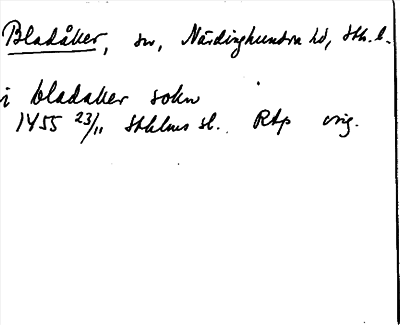 Bladåker, sn, Närdinghundra hd, Sth. l.
i bladaker sokn
1455 23/11 Sthlms sl. RAp orig.